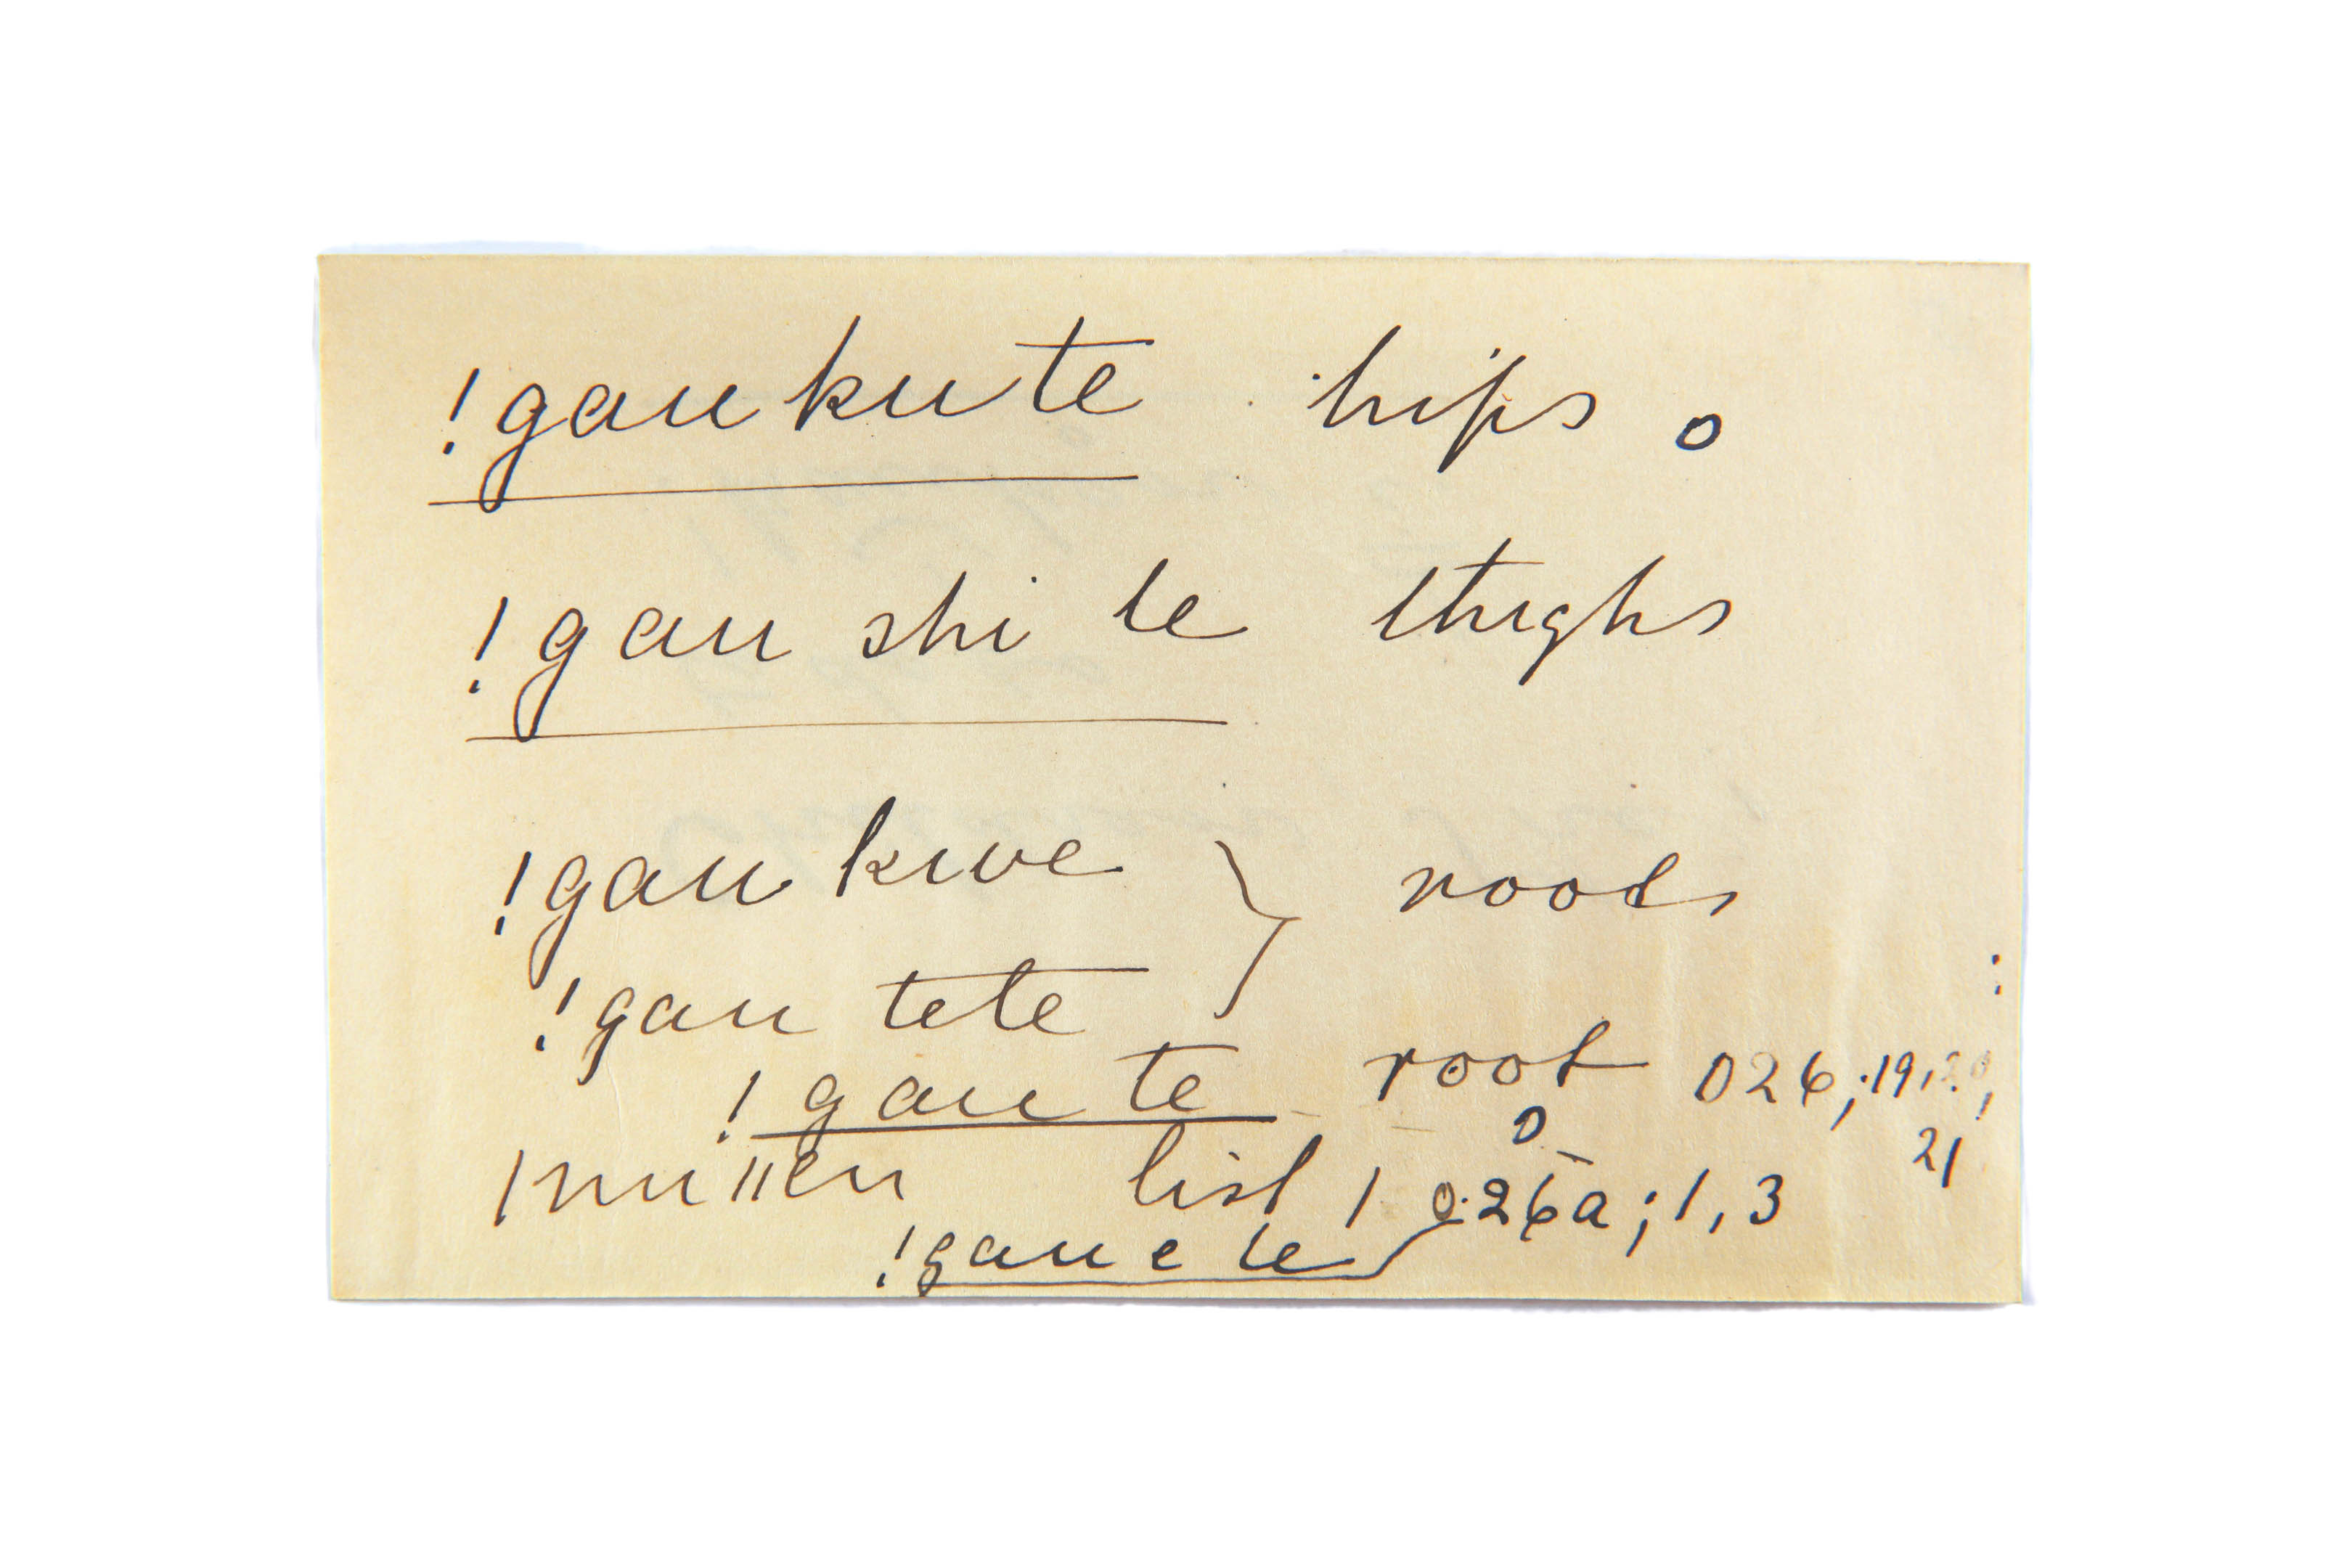 !gaukute hips o
!gau shi te thighs
!gau kwe } roots
!gau tete
!gau te root 026; 19, 20,
21
|nu||en list 1 0.26a; 1, 3
!gau e te